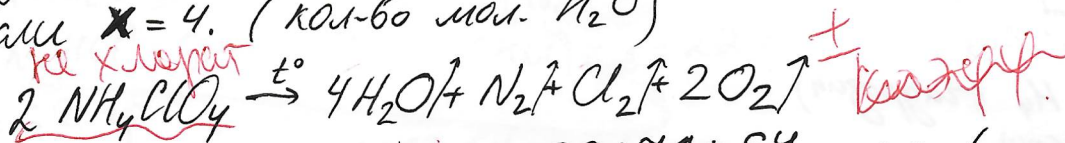 али x = 4. (кол-во мол. H₂O)
не хлорат
2 NH₄ClO₄ t° → 4H₂O↑ + N₂↑ + Cl₂↑ + 2O₂↑ ± коэфф.